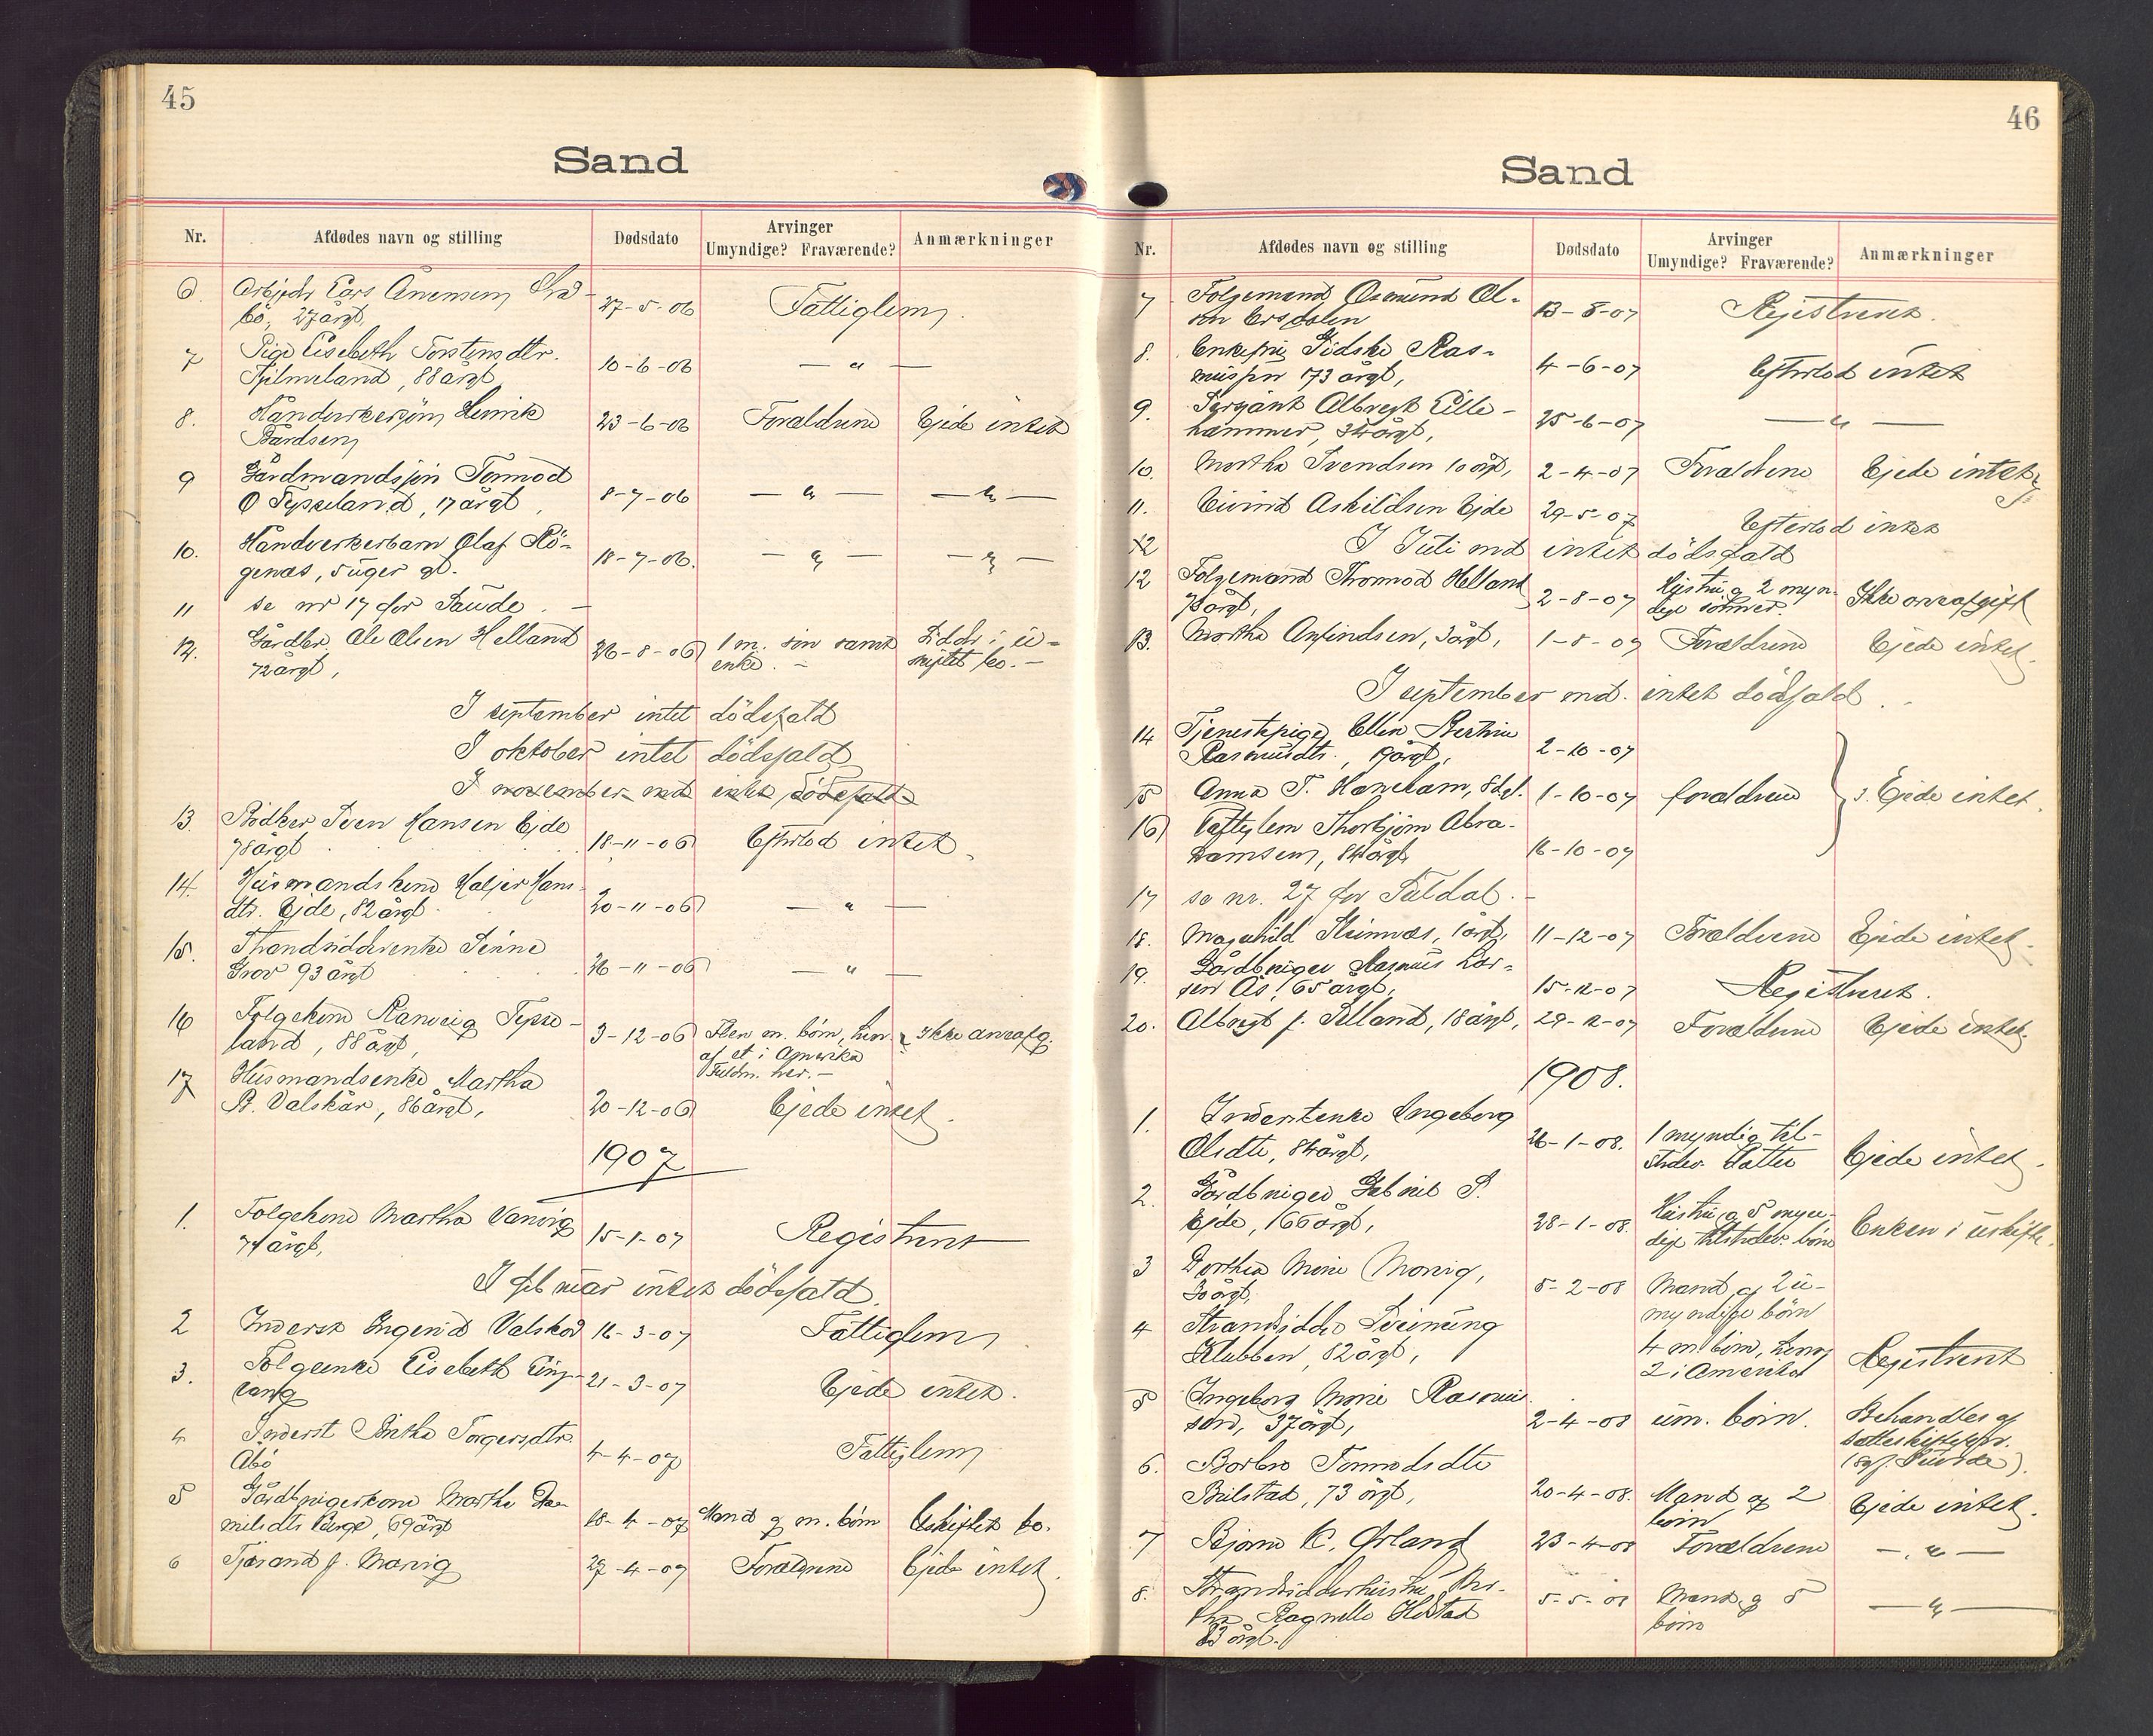 45
Sand
Nr. Afdødes navn og stilling Dødsdato Arvinger Umyndige? Fraværende? Anmærkninger
6. Arbejder Lars Anensen
bö, 27 årgl, 27-5-06 Fattiglem.
7 Pige Elisebeth Torstensdtr.
Fjilmeland, 88 årgl 10-6-06 — " —
8. Håndverkersøn Henrik
Bårdsen 23-6-06 Forældrene Ejede intet
9 Gårdmandsøn Tormod
O Tysseland, 17 årgl 8-7-06 — " — — " —
10. Håndverkerbarn Olaf Rö-
genæs, 5 uger gl. 18-7-06. — " — — " —
11 se nr 17 for Saude. —
12. Gårdbr. Ole Olsen Helland
72 årgl, 26-8-06 1 m. søn samt
enke. — Sidder i u-
skiftet bo. —
I september intet dödsfald
I oktober intet dödsfald
I november md intet dödsfald
13 Bödker Sven Hansen Ejde
78 årgl 18-11-06 Efterlod intet.
14. Husmandskone Maljer Hans-
dtr. Ejde, 82 årgl. 20-11-06 — " —
15. Strandsidderenke Sinne
Grov 93 årgl 26-11-06 — " —
16 Folgekone Ranveig Tysse-
land, 88 årgl, 3-12-06 Flere m. börn, hvor-
af et i Amerika
Fuldm. her. — Ikke arveafg.
17 Husmandsenke Martha
B. Valskår, 86 årgl, 20-12-06 Ejede intet.
1907
1. Folgekone Martha Vanvig
74 årgl, 15-1-07 Registreret
I februar intet dödsfald.
2 Inderst Ingerid Valskår 16-3-07 Fattiglem
3. Folgeenke Elisebeth Ling-
vang 21-3-07 Ejede intet.
4 Inderst Birthe Torgersdtr.
Åbö 4-4-07 Fattiglem
5 Gårdbrugerkone Marthe Da-
nielsdtr Berge, 69 årgl 18-4-07 Mand og m. börn Uskiftet bo.
6 Tjærand J. Marvig 27-4-07 Forældrene Ejede intet.
46
Sand
Nr. Afdødes navn og stilling Dødsdato Arvinger Umyndige? Fraværende? Anmærkninger
7 Folgemand Osmund Ol-
sen 13-8-07 Registreret.
8. Enkefru Gidske Ras-
mussen 73 årgl, 4-6-07 Efterlod intet
9. Sergiant Albregt Lille-
hammer, 34 årgl, 25-6-07 — " —
10. Martha Svendsen 10 årgl, 2-4-07 Forældrene Ejede intet
11. Eivind Askildsen Ejde 29-5-07 Efterlod intet
12 I Juli md intet dödsfald
12 Folgemand Thormod Helland
78 årgl, 2-8-07 Hustru og 2 myn-
dige sönner. Ikke arveafgift
13. Martha Arfindsen, 3 årgl, 1-8-07 Forældrene Ejede intet.
I september md. intet dödsfald.
14 Tjenestepige Ellen Bertine
Rasmusdtr., 19 årgl, 2-10-07
15 Anna T. Haneham, 8 dgl. 1-10-07 forældrene Ejede intet.
16) Fattiglem Thorbjörn Abra-
hamsen, 84 årgl. 16-10-07
17 se nr. 27 for Suldal. —
18. Magnhild Steinnæs, 1 årgl, 11-12-07 Forældrene Ejede intet.
19. Gårdbruger Rasmus Lar-
sen Ås, 65 årgl, 15-12-07 Registreret.
20. Albregt J. Selland, 18 årgl, 29-12-07 Forældrene Ejede intet.
1908.
1. Inderstenke Ingeborg
Olsdtr, 84 årgl, 26-1-08. 1 myndig til-
stedev. datter Ejede intet.
2. Gårdbruger Gabriel S.
Ejde, 66 årgl, 28-1-08. Hustru og 5 myn-
dige tilstedev. börn Enken i uskifte.
3 Dorthea Marie Marvig,
30 årgl, 5-2-08 Mand og 2 u-
myndige börn
4 Strandsidder Sveinung
Klubben, 82 årgl, 4 m. börn, hvoraf
2 i Amerika Registreret
5 Ingeborg Marie Rasmus-
sen, 37 årgl, 2-4-08 um. börn. Behandles af
(sogn. Saude).
6. Borbro Tormodsdtr
Bilstad, 73 årgl, 20-4-08. Mand og 2
börn Ejede intet.
7 Bjarne K. Ørland 23-4-08 Forældrene — " —
8. Strandsidderhustru Ber-
tha Ragnille Hestad
83 årgl. 5-5-08 Mand og 5
börn — " —